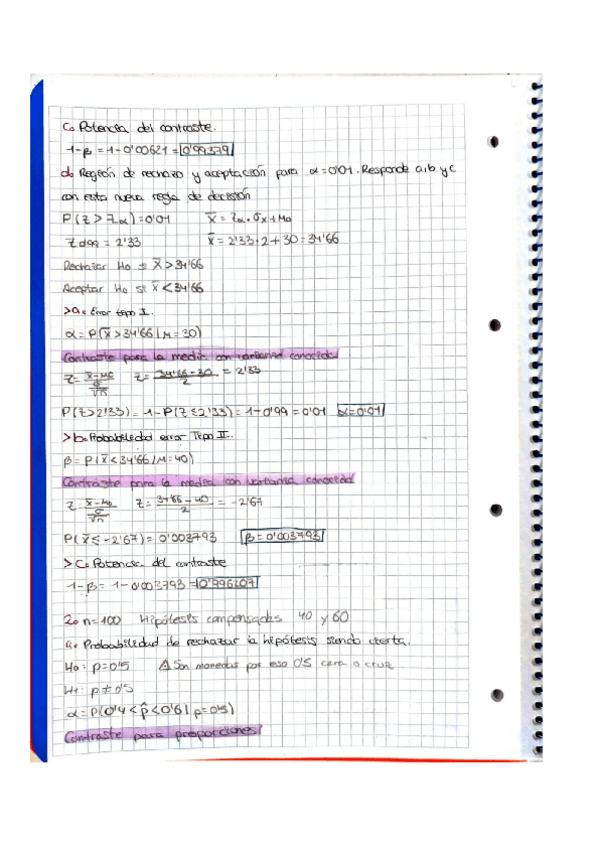 c. Potencia del contraste.
1-β = 1-0'00621 = 0'99379
d. Región de rechazo y aceptación para α=0'01. Responde a, b y c
con esta nueva regla de decisión
P(Z > Zα)=0'01 X̄ = Zα·σx + μ0
Z0'99 = 2'33 X̄ = 2'33·2 + 30 = 34'66
Rechazar H0 si X̄ > 34'66
Aceptar H0 si X̄ < 34'66
>a. Error tipo I.
α = P(X̄ > 34'66 / μ = 30)
Contraste para la media con varianza conocida
Z = X̄-μ0 / σ/√n Z = 34'66-30 / 2 = 2'33
P(Z>2'33) = 1-P(Z≤2'33) = 1-0'99 = 0'01 α=0'01
>b. Probabilidad error Tipo II.
β = P(X̄ < 34'66 / μ = 40)
Contraste para la media con varianza conocida
Z = X̄-μ0 / σ/√n Z = 34'66-40 / 2 = -2'67
P(X̄ ≤ -2'67) = 0'003793 β = 0'003793
>c. Potencia del contraste
1-β = 1-0'003793 = 0'996207
2. n=100 Hipótesis compensadas 40 y 60
a. Probabilidad de rechazar la hipótesis siendo cierta.
H0: p=0'5 ⚠ Son monedas por eso 0'5 cara o cruz
H1: p≠0'5
α = P(0'4 < p̂ < 0'6 | p=0'5)
Contraste para proporciones